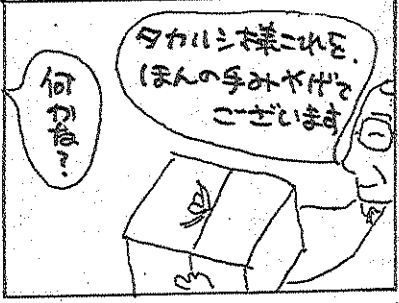 タカルシ様これを、
ほんの手みやげで
ございます
何かね?